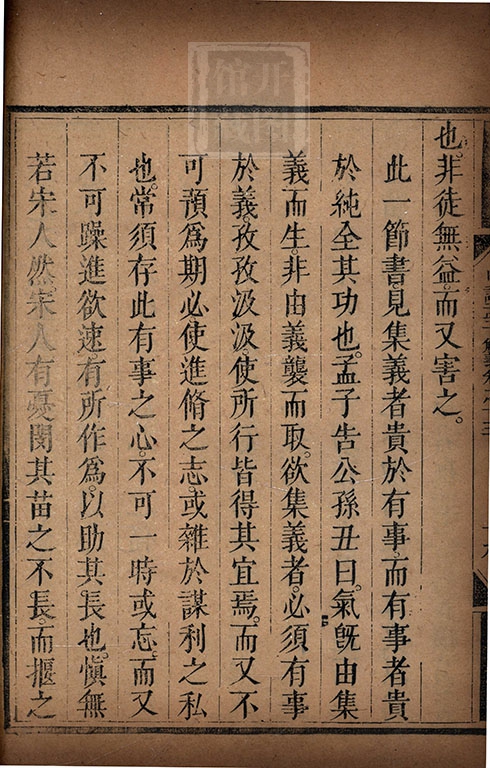 也。非徒無益。而又害之。
此一節書。見集義者貴於有事。而有事者貴
於純全其功也。孟子告公孫丑曰。氣旣由集
義而生。非由義襲而取。欲集義者。必須有事
於義。孜孜汲汲。使所行皆得其宜焉。而又不
可預爲期必。使進脩之志。或雜於謀利之私
也。常須存此有事之心。不可一時或忘。而又
不可躁進欲速。有所作爲。以助其長也。愼無
若宋人然。宋人有憂閔其苗之不長。而揠之